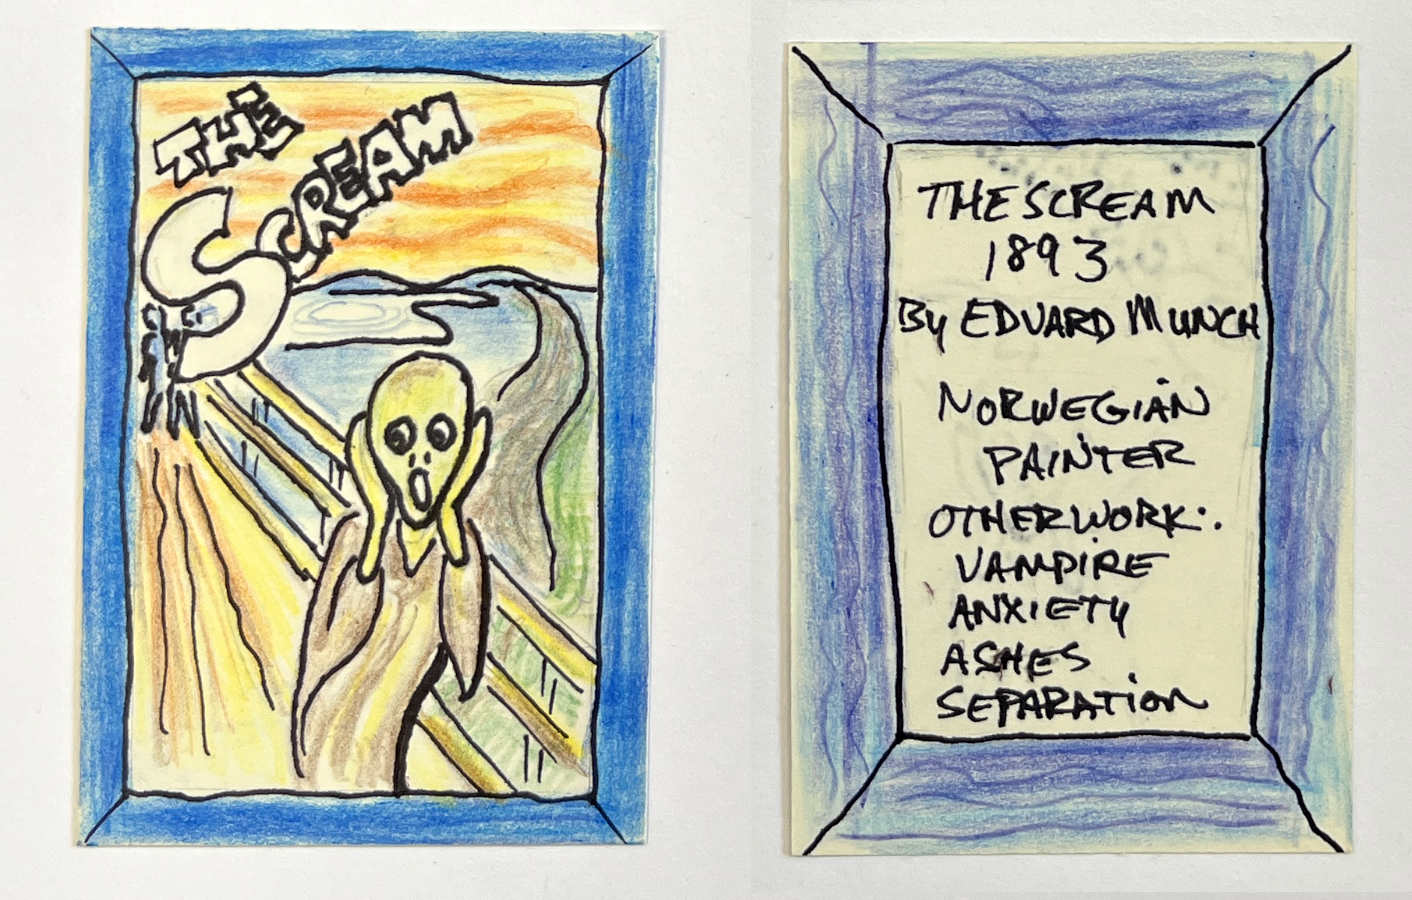 THE
SCREAM
THE SCREAM
1893
By EDVARD MUNCH
NORWEGIAN
PAINTER
OTHER WORK:.
VAMPIRE
ANXIETY
ASHES
SEPARATION